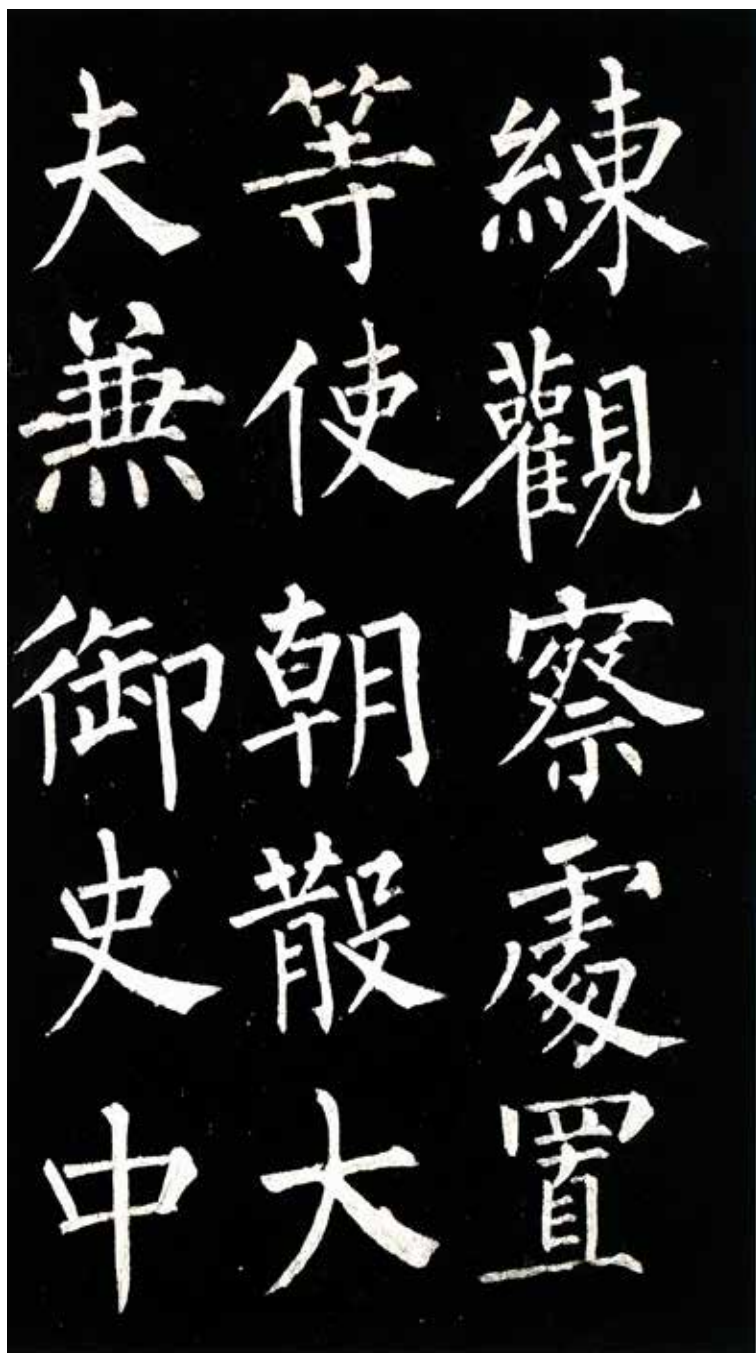 練觀察處置
等使朝散大
夫兼御史中